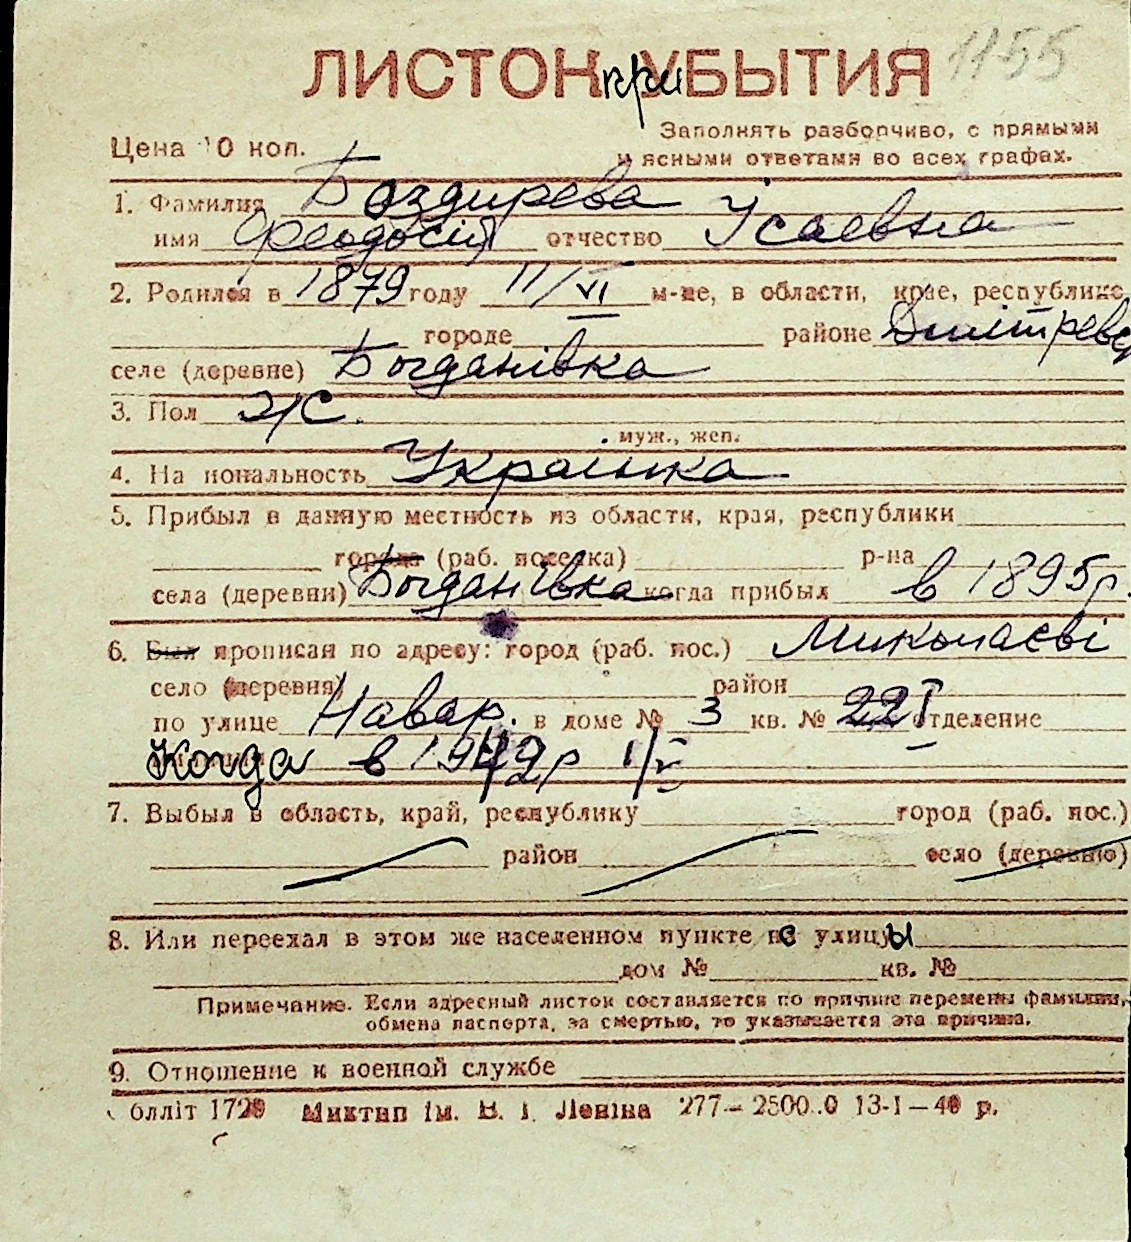 1155
ЛИСТОК при УБЫТИЯ
Заполнять разборчиво, с прямыми
Цена 10 коп.
и ясными ответами во всех графах.
1. Фамилия Боздирева
имя Феодосія отчество Ісаевна
2. Родился в 1879 году 11/VI м-це, в области, крае, республике
городе районе Дмітревс
селе (деревне) Богданівка
3. Пол Ж
муж., жен.
4. Национальность Українка
5. Прибыл в данную местность из области, края, республики
города (раб. поселка) р-на
села (деревни) Богданівка когда прибыл в 1895 р.
6. Был прописан по адресу: город (раб. пос.) Миколаєві
село (деревня) район
по улице Навар. в доме № 3 кв. № 22 I отделение
Когда в 1942 р 1/V
7. Выбыл в область, край, республику город (раб. пос.)
район село (деревню)
8. Или переехал в этом же населенном пункте с улицы
дом № кв. №
Примечание. Если адресный листок составляется по причине перемены фамилии,
обмена паспорта, за смертью, то указывается эта причина.
9. Отношение к военной службе
блліт 1729 Миктип ім. В. І. Леніна 277—2500.0 13-I—40 р.